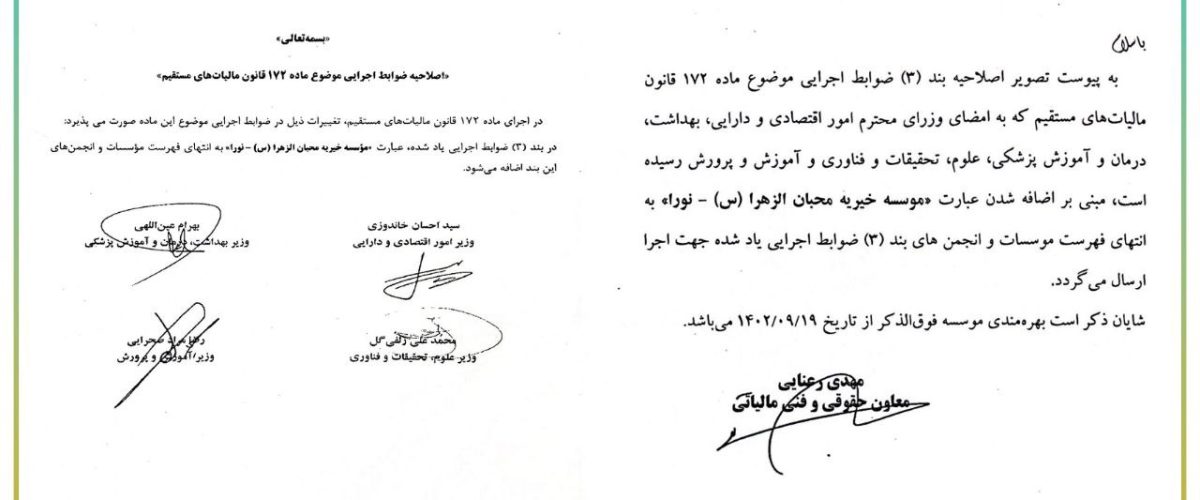 با سلام
به پیوست تصویر اصلاحیه بند (۳) ضوابط اجرایی موضوع ماده ۱۷۲ قانون
مالیات‌های مستقیم که به امضای وزرای محترم امور اقتصادی و دارایی، بهداشت،
درمان و آموزش پزشکی، علوم، تحقیقات و فناوری و آموزش و پرورش رسیده
است، مبنی بر اضافه شدن عبارت «موسسه خیریه محبان الزهرا (س) – نورا» به
انتهای فهرست موسسات و انجمن های بند (۳) ضوابط اجرایی یاد شده جهت اجرا
ارسال می‌گردد.
شایان ذکر است بهره‌مندی موسسه فوق‌الذکر از تاریخ ۱۴۰۲/۰۹/۱۹ می‌باشد.
مهدی رعنایی
معاون حقوقی و فنی مالیاتی
«بسمه‌تعالی»
«اصلاحیه ضوابط اجرایی موضوع ماده ۱۷۲ قانون مالیات‌های مستقیم»
در اجرای ماده ۱۷۲ قانون مالیات‌های مستقیم، تغییرات ذیل در ضوابط اجرایی موضوع این ماده صورت می پذیرد:
در بند (۳) ضوابط اجرایی یاد شده، عبارت «مؤسسه خیریه محبان الزهرا (س) – نورا» به انتهای فهرست مؤسسات و انجمن‌های
این بند اضافه می‌شود.
سید احسان خاندوزی
وزیر امور اقتصادی و دارایی
بهرام عین‌اللهی
وزیر بهداشت، درمان و آموزش پزشکی
محمد علی زلفی گل
وزیر علوم، تحقیقات و فناوری
رضا مراد صحرایی
وزیر آموزش و پرورش